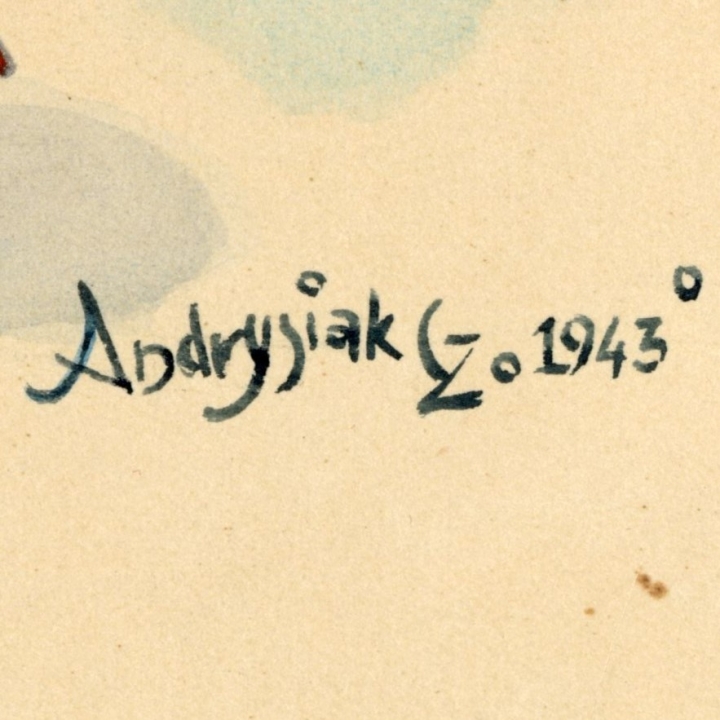 Andrysiak G. 1943